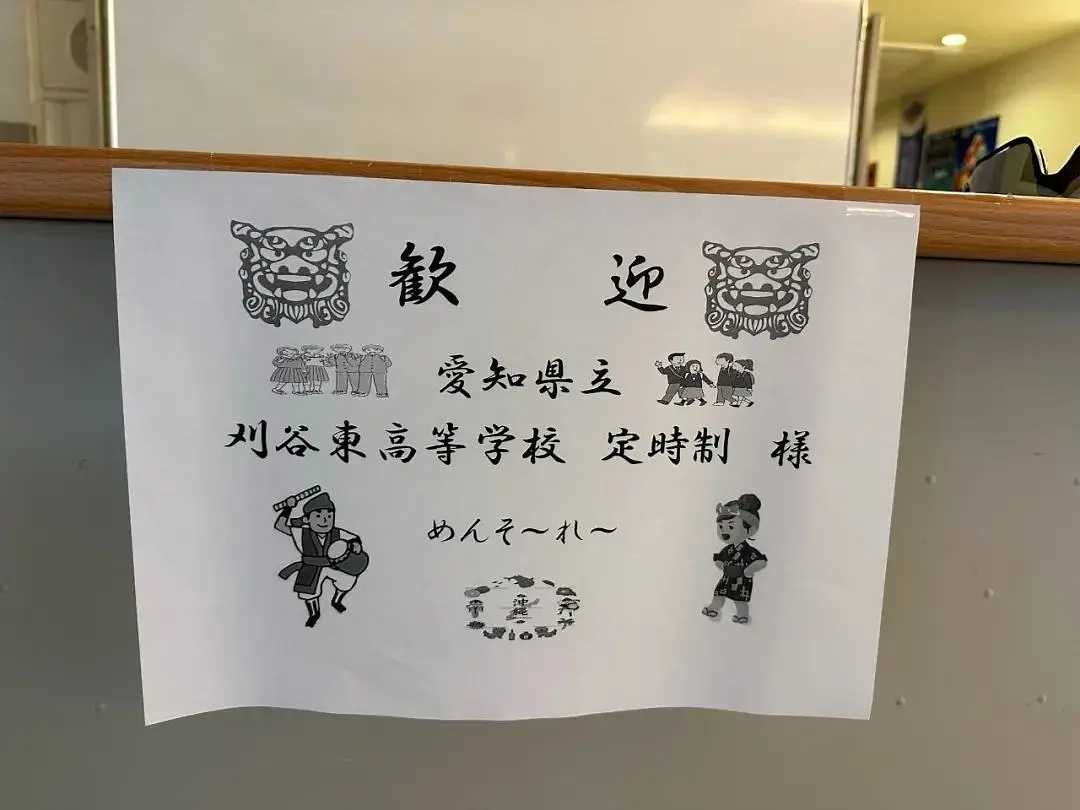 歓 迎
愛知県立
刈谷東高等学校 定時制 様
めんそ～れ～
沖縄